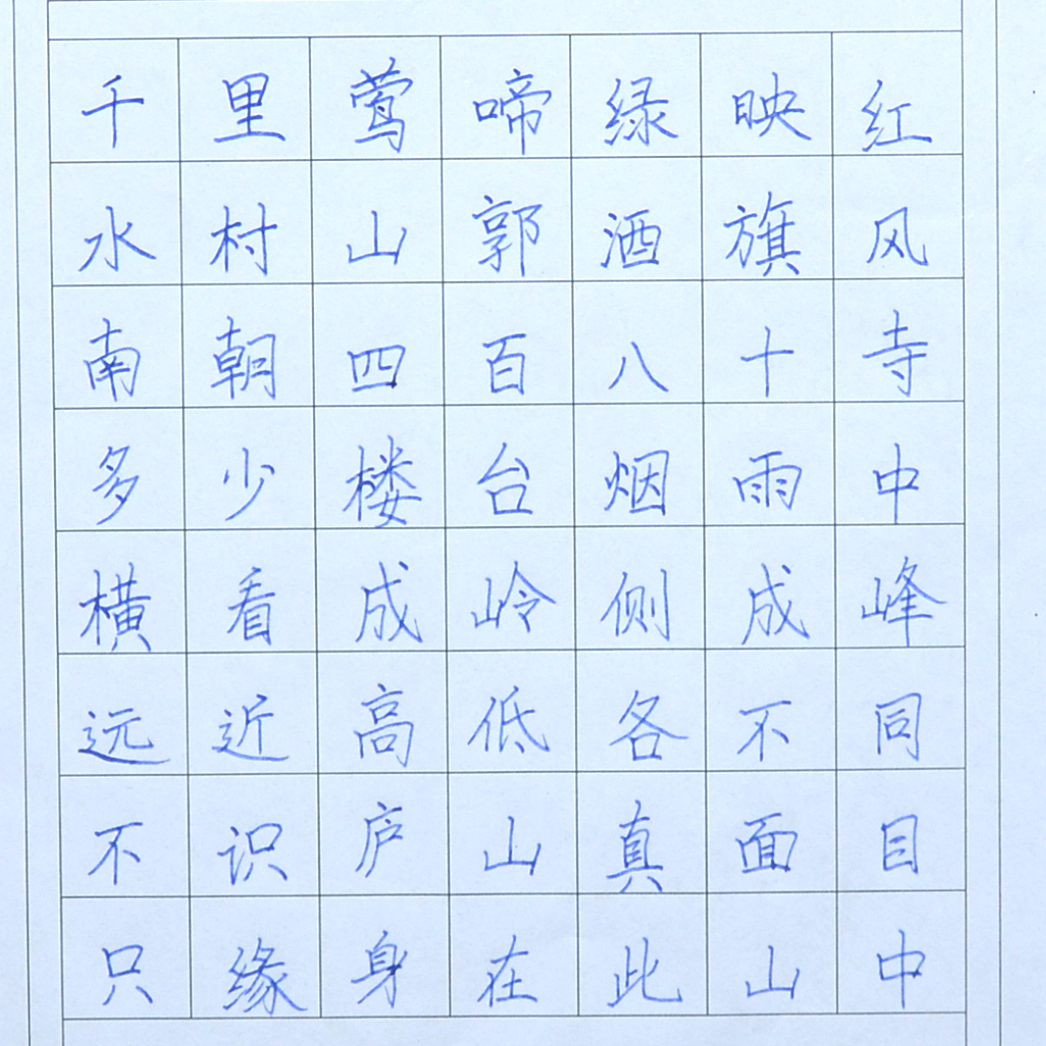 千里莺啼绿映红
水村山郭酒旗风
南朝四百八十寺
多少楼台烟雨中
横看成岭侧成峰
远近高低各不同
不识庐山真面目
只缘身在此山中